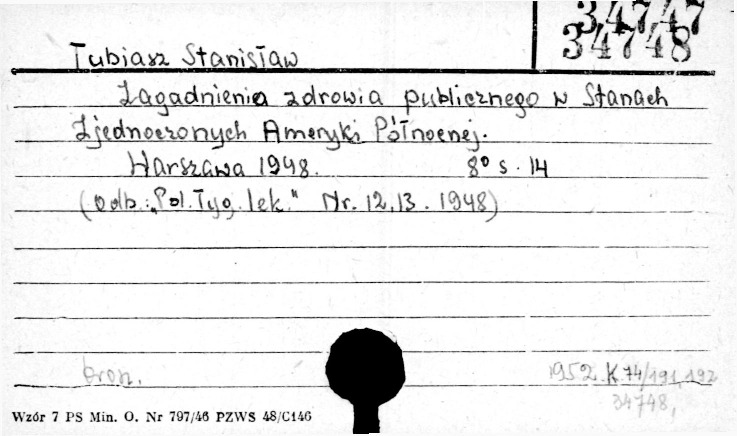 34747
34748
Tubiasz Stanisław
Zagadnienia zdrowia publicznego w Stanach
Zjednoczonych Ameryki Północnej.
Warszawa 1948. 8° s. 14
(Odb. „Pol. Tyg. lek." Nr. 12, 13. 1948)
bron. 1952 K 74/191,192
34748,
Wzór 7 PS Min. O. Nr 797/46 PZWS 48/C146